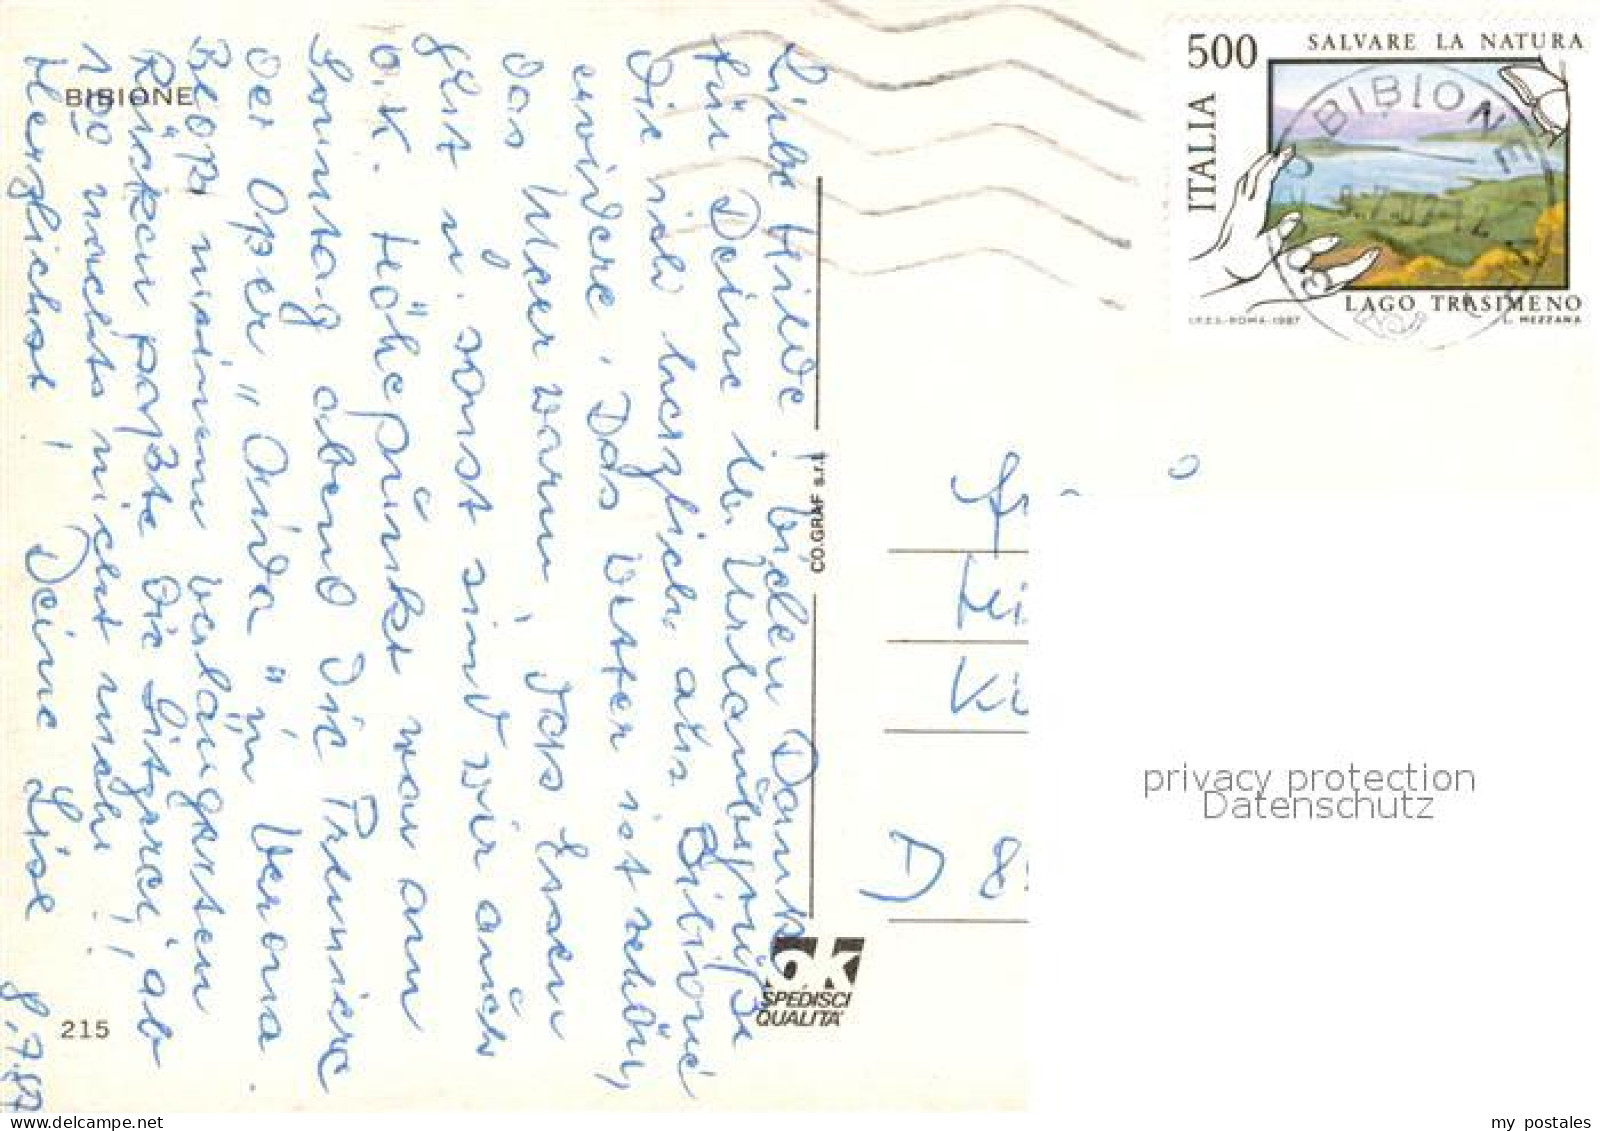 BIBIONE
Liebe Hilde! Vielen Dank
für Deine lb. Urlaubsgrüße
die ich herzlich aus Bibione
erwidere. Das Wetter ist schön,
das Meer warm, das Essen
gut u. sonst sind wir auch
o.K. Höhepunkt war am
Sonntag abend die Premiere
der Oper "Aida" in Verona.
Bloß meinem verlängerten
Rücken paßte die Sitzerei ab
100 nachts nicht mehr!
Herzlichst! Deine Lise
8.7.87
215
CO.GRAF s.r.l.
ok
SPEDISCI
QUALITA'
500
SALVARE LA NATURA
ITALIA
LAGO TRASIMENO
I.P.Z.S.-ROMA-1987
L. MEZZANA
BIBIONE
D 8
privacy protection
Datenschutz
my postales